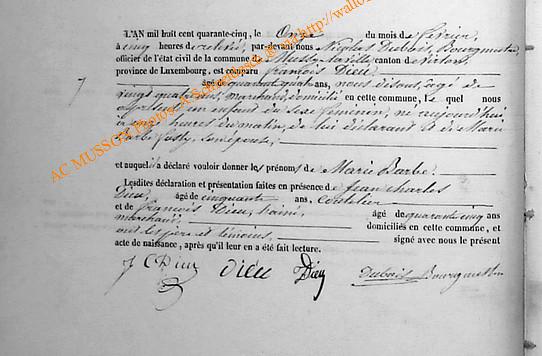 L'AN mil huit cent quarante-cinq, le Onze du mois de février
à cinq heures de relevée, par-devant nous Nicolas Dubois, Bourgmestre
officier de l'état civil de la commune de Mussy-la-ville canton de Virton,
province de Luxembourg, est comparu françois Dieu
âgé de quarante quatre ans, nous disons, âgé de
vingt quatre ans, marchand, domicilié en cette commune, Le quel nous
a présenté un enfant du sexe féminin, né aujourd'hui
à sept heures du matin, de lui déclarant et de Marie
Barbe son épouse,
et auquel il a déclaré vouloir donner les prénoms de Marie Barbe.
Lesdites déclaration et présentation faites en présence de Jean Charles
Dieu, âgé de cinquante ans,
et de françois Dieu, l'aîné, âgé de quarante cinq ans
marchand, domiciliés en cette commune, et
ont les père et témoins, signé avec nous le présent
acte de naissance, après qu'il leur en a été fait lecture.
J C Dieu Dieu Dieu Dubois Bourgmestre
AC MUSSON Photos: A.S.